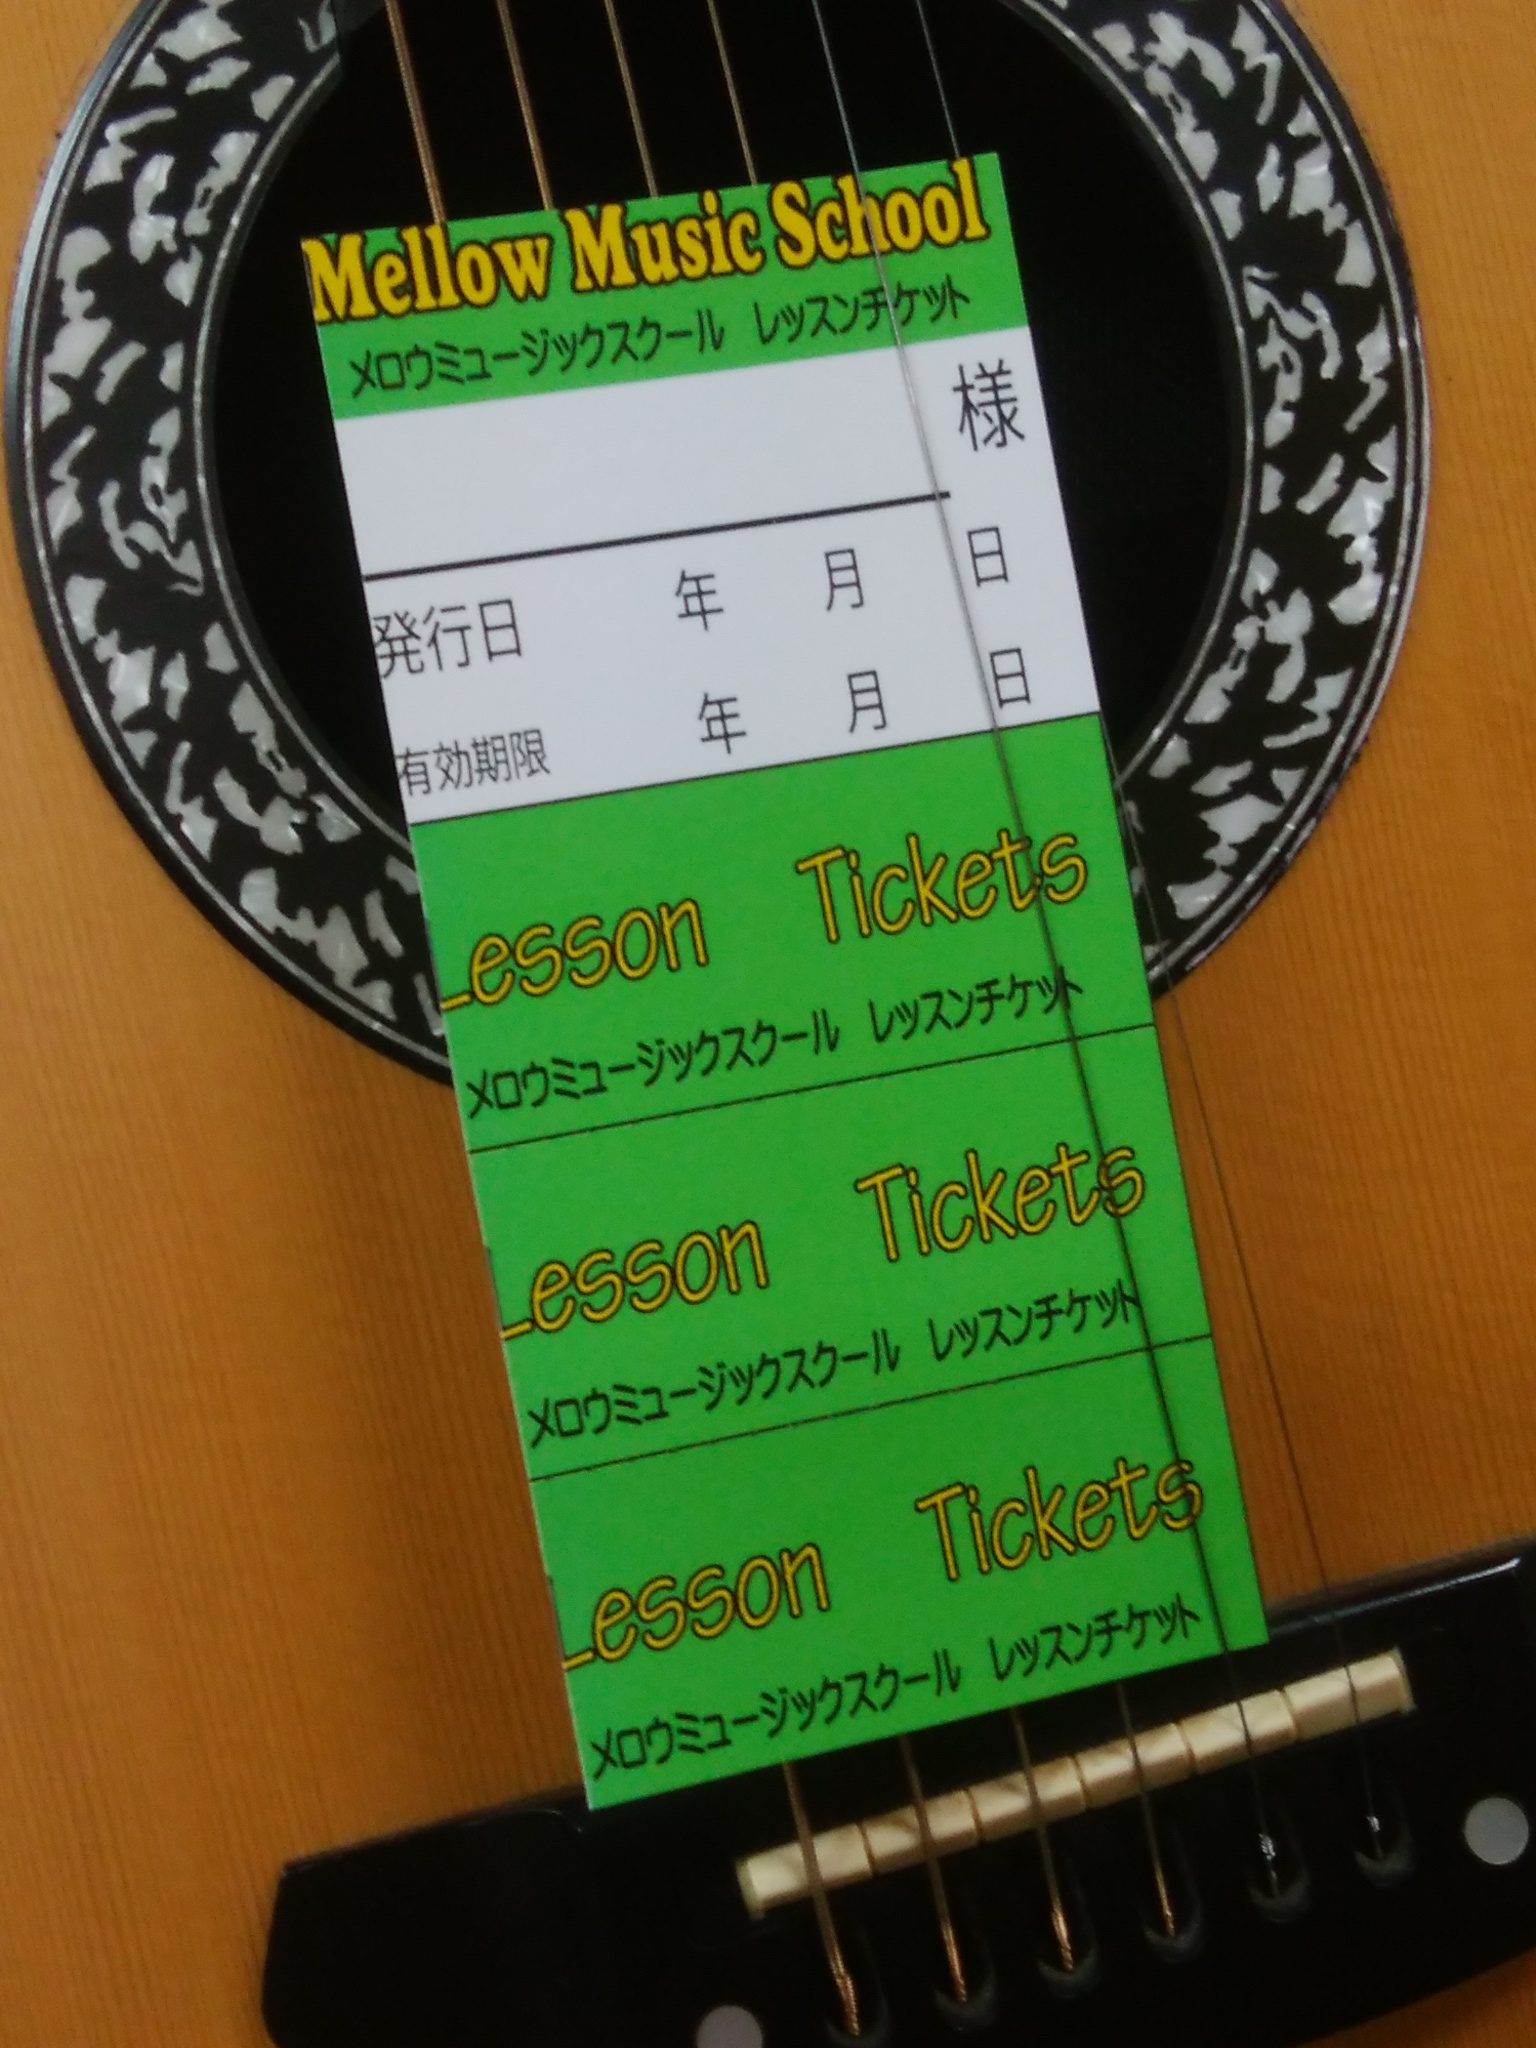 Mellow Music School
メロウミュージックスクール　レッスンチケット
様
発行日　年　月　日
有効期限　年　月　日
Lesson Tickets
メロウミュージックスクール　レッスンチケット
Lesson Tickets
メロウミュージックスクール　レッスンチケット
Lesson Tickets
メロウミュージックスクール　レッスンチケット